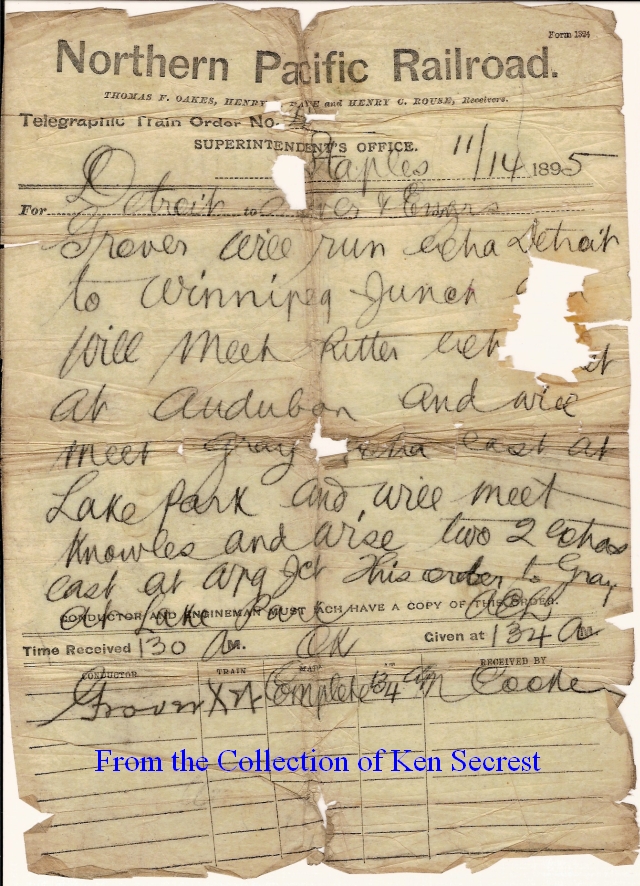 Form 1324
Northern Pacific Railroad.
THOMAS F. OAKES, HENRY C. PAYNE and HENRY C. ROUSE, Receivers.
Telegraphic Train Order No.
SUPERINTENDENT'S OFFICE.
Staples 11/14 1895
For Detroit to Grover & Engrs
Grover will run extra Detroit
to Winnipeg Junct
Will meet Ritter
at Audubon and will
meet Gray extra east at
Lake Park and will meet
Knowles and two 2 Extras
east at Wpg Jct This order to Gray
at Lake Park
CONDUCTOR AND ENGINEMAN MUST EACH HAVE A COPY OF THIS ORDER.
Time Received 130 A M. OK Given at 134 A M
CONDUCTOR TRAIN MADE AT RECEIVED BY
Grover Complete 134 AM Cooke
From the Collection of Ken Secrest